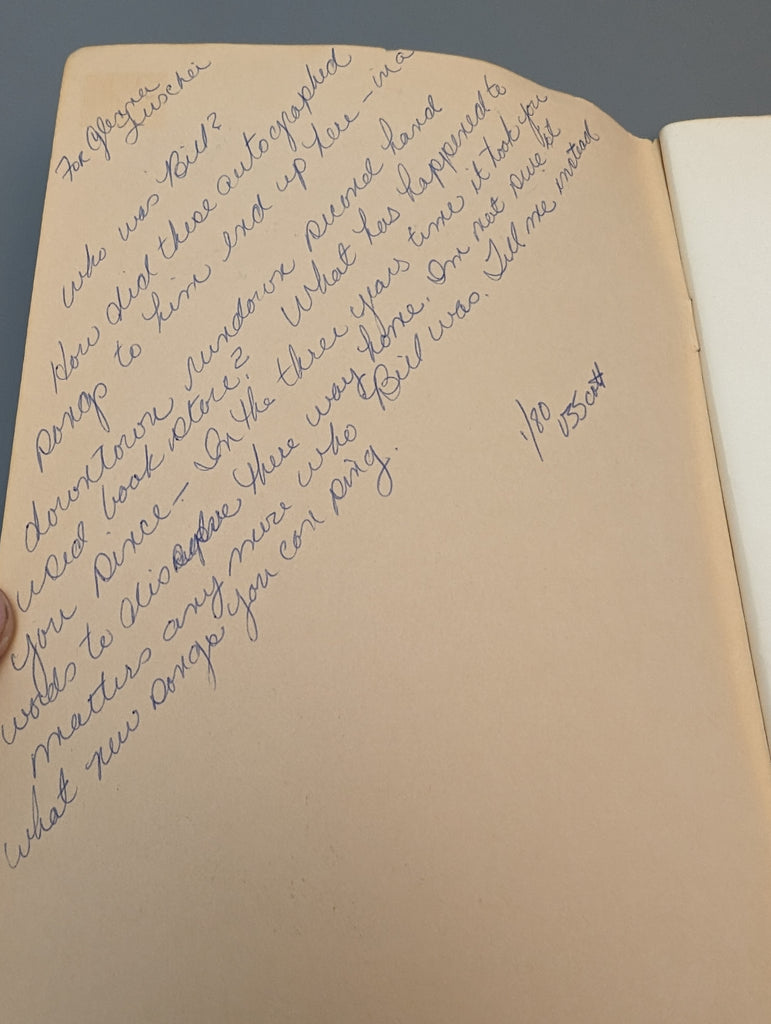 For Glenna
Luschei
who was Bill?
How did these autographed
songs to him end up here - in a
downtown rundown second hand
used book store? What has happened to
you since - In the three years time it took you
words to disolve there way home. Im not sure it
matters any more who Bill was. Tell me instead
what new songs you can sing.
1/80